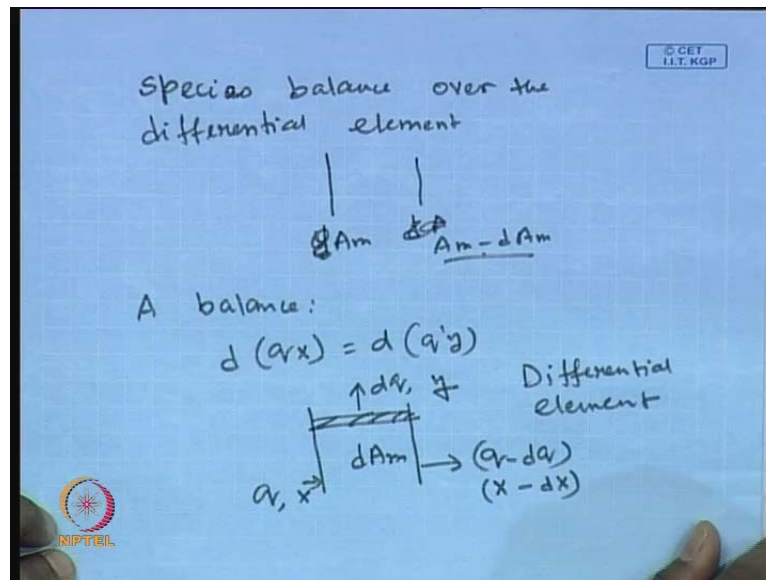 © CET
I.I.T. KGP
Species balance over the
differential element
Am
Am - dAm
A balance:
d (qx) = d (q'y)
↑dq, y
Differential
element
dAm
→ (q-dq)
q, x→
(x - dx)
NPTEL